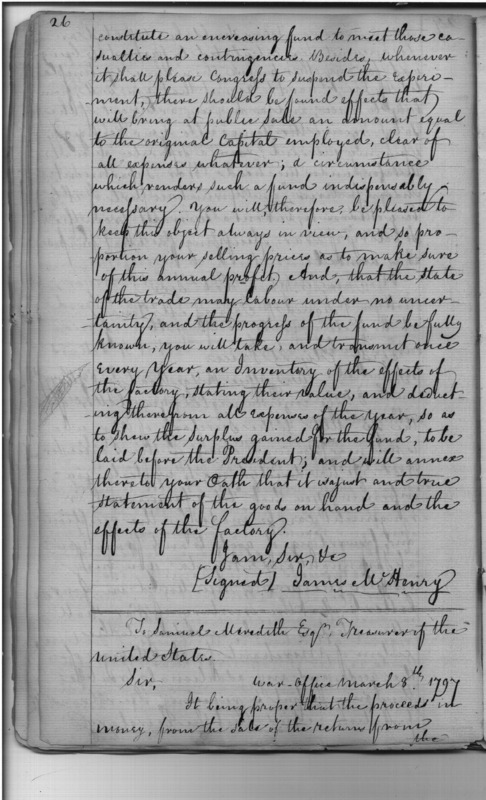 26
constitute an encreasing fund to meet those ca-
sualties and contingencies. Besides, whenever
it shall please Congress to suspend the experi-
ment, there should be found effects that
will bring at public sale an amount equal
to the original Capital employed, clear of
all expenses whatever; a circumstance
which renders such a fund indispensably
necessary. You will, therefore, be pleased to
keep the object always in view, and so pro-
portion your selling prices as to make sure
of this annual profit, And, that the state
of the trade may labour under no uncer-
tainty, and the progress of the fund be fully
known, you will take, and transmit once
every Year, an Inventory of the effects of
the factory, stating their value, and deduct-
ing therefrom all expenses of the year, so as
to shew the surplus gained for the fund, to be
laid before the President; and will annex
thereto your Oath that it is a just and true
statement of the goods on hand and the
effects of the factory.
I am, Sir, &c
[Signed] James McHenry
To Samuel Meredith Esqr. Treasurer of the
united States.
Sir, war-Office march 8.th 1797
It being proper that the proceeds in
money, from the sale of the returns from
the